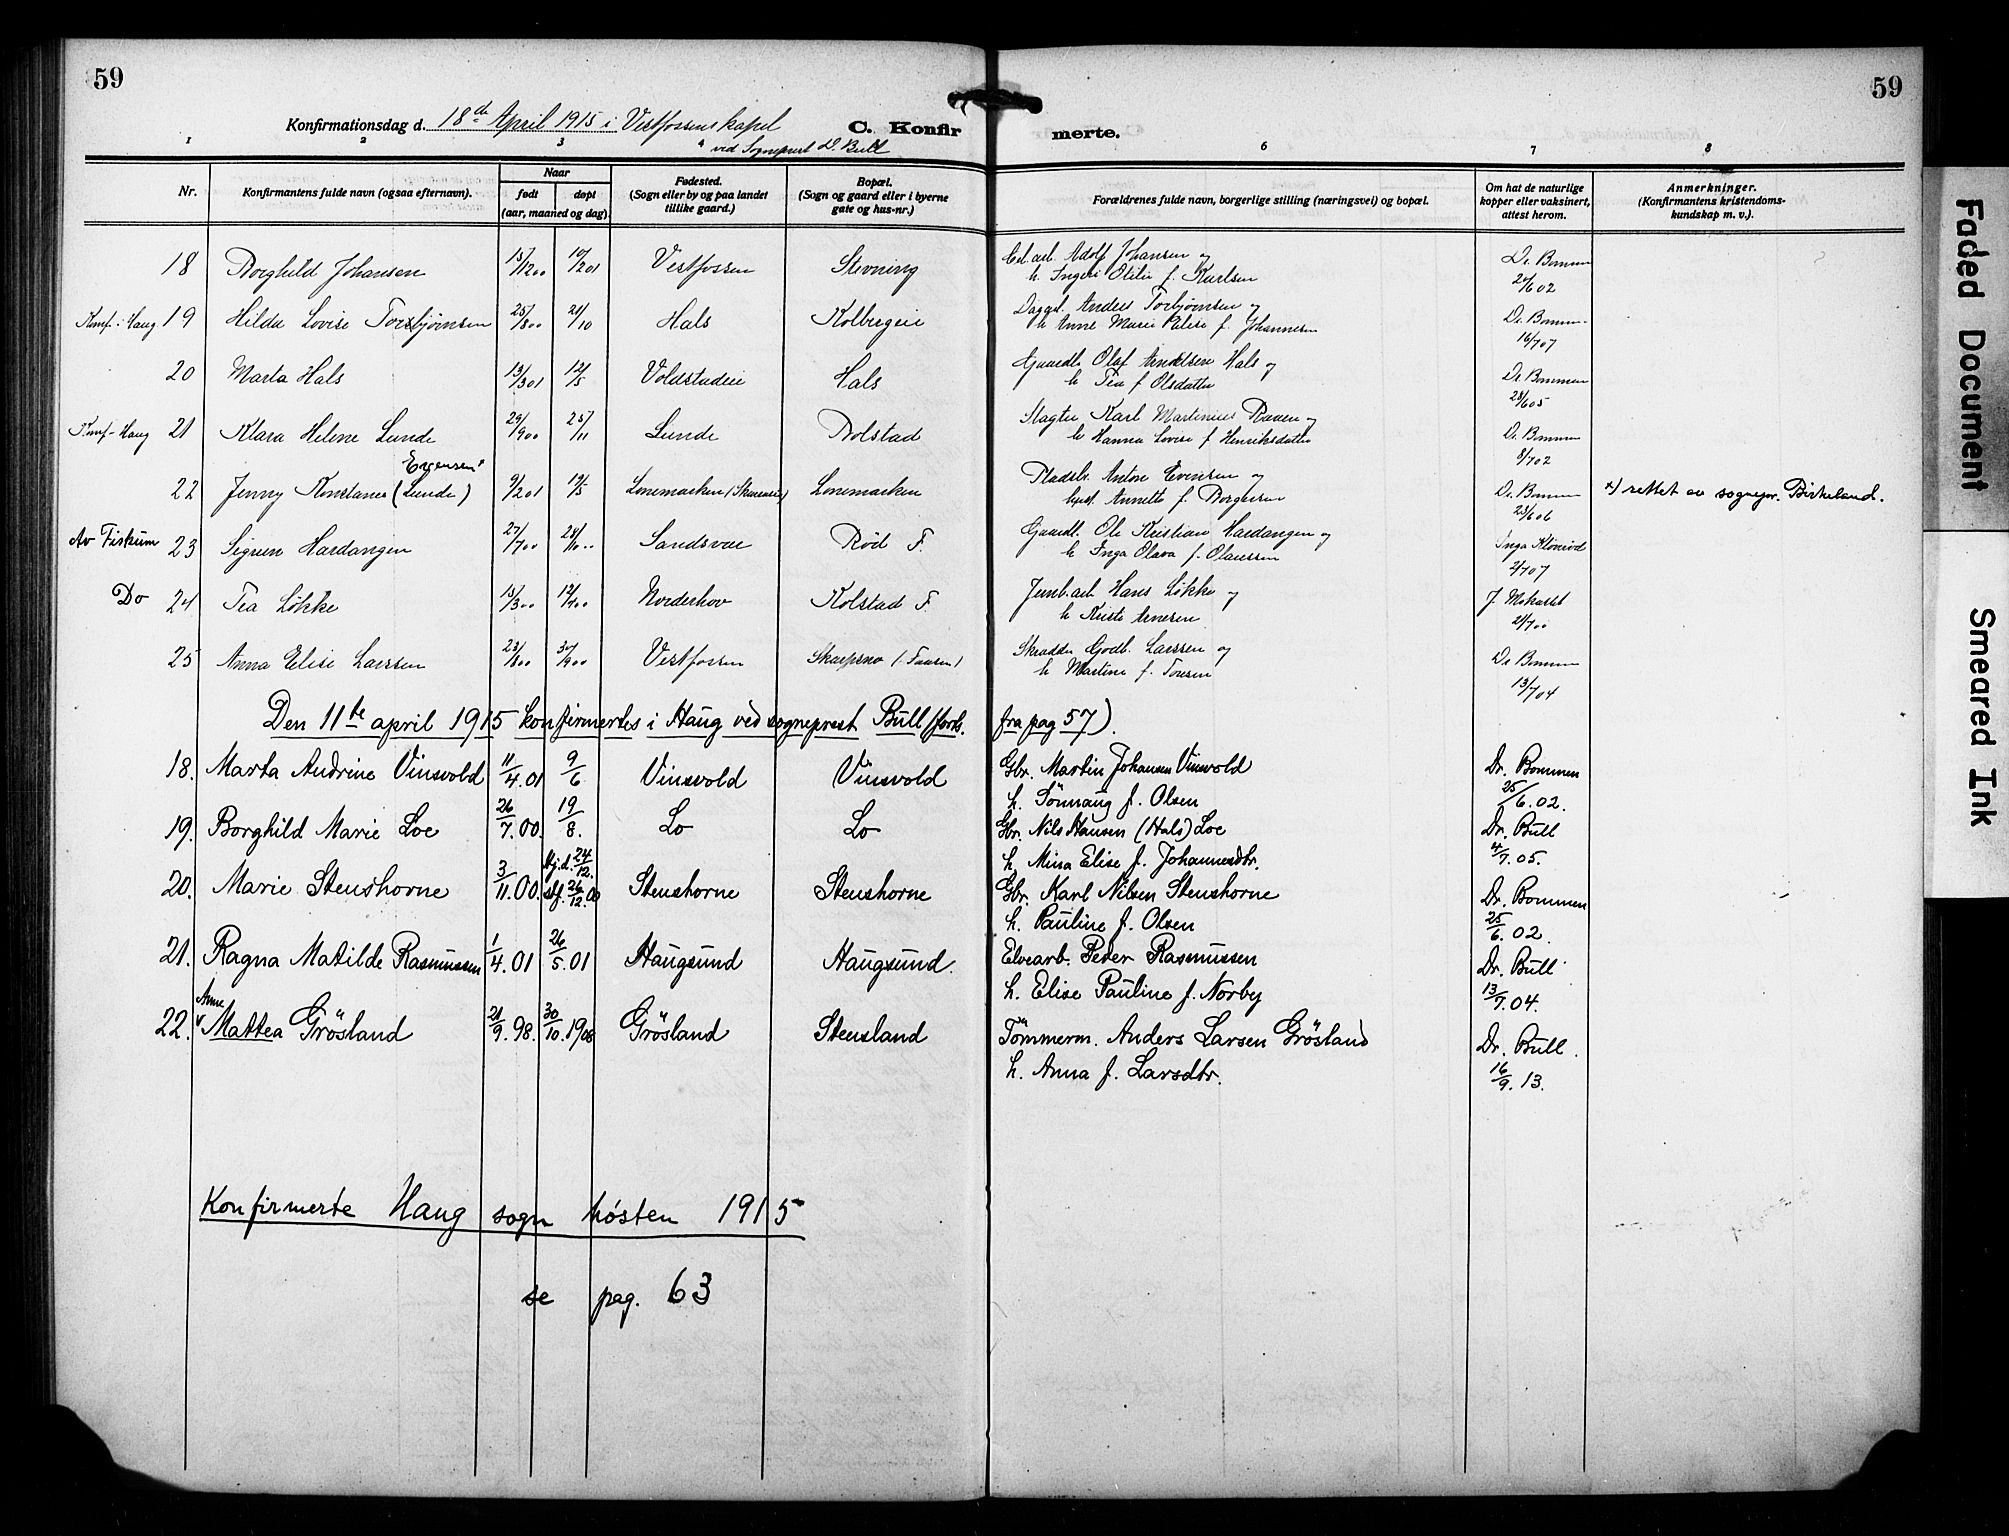 59
59
Konfirmationsdag d. 18de April 1915 i Vestfossen kapel
ved Sogneprest D. Bull
C. Konfirmerte.
1 2 3 4 6 7 8
Nr.
Konfirmantens fulde navn (ogsaa efternavn).
Naar
født
døpt
(aar, maaned og dag)
Fødested.
(Sogn eller by og paa landet
tillike gaard.)
Bopæl.
(Sogn og gaard eller i byerne
gate og hus-nr.)
Forældrenes fulde navn, borgerlige stilling (næringsvei) og bopæl.
Om hat de naturlige
kopper eller vaksinert,
attest herom.
Anmerkninger.
(Konfirmantens kristendoms-
kundskap m. v.).
18 Borghild Johansen 15/12 00 10/2 01 Vestfossen Stevning Adolf Johansen og Dr. Bommen
h. Ingeri Otilie f. Karlsen 24/6 02
Konf. i Haug 19 Hilda Lovise Torbjørnsen 25/8 00 21/10 Hals Kolbergeie Daggl. Anders Torbjørnsen og Dr. Bommen
h. Anne Marie Elise f. Johannesen 16/7 07
20 Marta Hals 13/3 01 12/5 Voldstadeie Hals Gaardb. Olaf Hals og Dr. Bommen
h. Tea f. Olsdatter 23/6 05
Konf. Haug 21 Klara Helene Lunde 29/9 00 25/11 Lunde Bolstad Slagter Karl Martinius og Dr. Bommen
h. Hanna Lovise f. Henriksdatter 8/7 02
22 Jenny Konstanse (Lunde) Evensen x 9/2 01 19/5 Lonemarken Lonemarken Pladsbr. Anton Evensen og Dr. Bommen x) rettet av sognepr. Birkeland.
hust. Annette f. Borgersen 23/6 06
Av Fiskum 23 Sigrun Hardangen 27/7 00 28/10 00 Sandsvær Rød F. Gaardb. Ole Kristian Hardangen og Inga
h. Inga Olava f. Olaussen 2/7 07
Do 24 Tea Løkke 15/3 00 12/7 00 Norderhov Kolstad F. Jernb.arb. Hans Løkke og J.
h. Kristi Arnesen 21/7 00
25 Anna Elise Larssen 23/8 00 30/9 00 Vestfossen Skarpsno Skrædder Godb. Larssen og Dr. Bommen
h. Martine f. Toresen 13/7 04
Den 11te april 1915 konfirmertes i Haug ved sogneprest Bull (forts. fra pag 57).
18. Marta Andrine Vinsvold 11/4. 01 9/6 Vinsvold Vinsvold Gbr. Martin Johansen Vinsvold Dr. Bommen
h. Tönnaug f. Olsen 25/6. 02.
19. Borghild Marie Loe 26/7. 00. 19/8. Lo Lo Gbr. Nils Hansen (Hals) Loe Dr. Bull
h. Mina Elise f. Johannesdtr. 4/7. 05.
20. Marie Stenshorne 3/11. 00. Hj.d. 24/12. stf. 26/12. 00 Stenshorne Stenshorne Gbr. Karl Nilsen Stenshorne Dr. Bommen
h. Pauline f. Olsen 25/6. 02.
21. Ragna Matilde Rasmussen 1/4. 01 26/5. 01 Haugsund Haugsund. Elvearb. Peder Rasmussen Dr. Bull
h. Elise Pauline f. Norby 13/7. 04.
22. Anne Mattea Grösland 21/9. 98. 30/10. 1908 Grösland Stensland Tömmerm. Anders Larsen Grösland Dr. Bull.
h. Anna f. Larsdtr. 16/9. 13.
Konfirmerte Haug sogn høsten 1915
se pag. 63
Faded Document
Smeared Ink